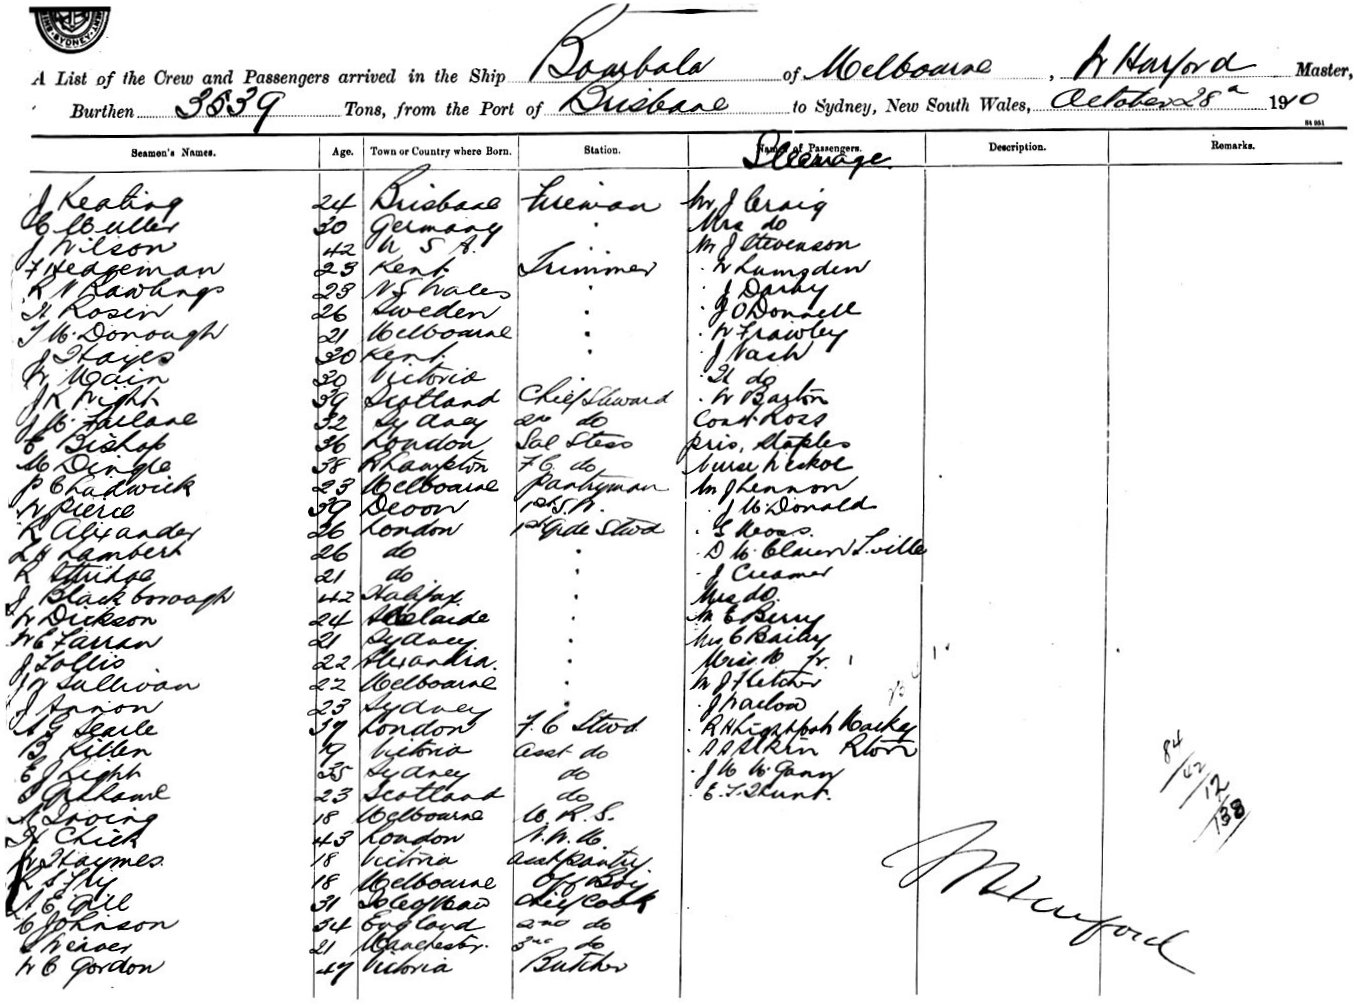 SYDNEY
A List of the Crew and Passengers arrived in the Ship Bombala of Melbourne, Hurford Master,
Burthen 3539 Tons, from the Port of Brisbane to Sydney, New South Wales, October 28th 1910
84 951
Seamen's Names. Age. Town or Country where Born. Station. Names of Passengers. Description. Remarks.
Steerage
J Keating 24 Brisbane Fireman Mr J Craig
C Muller 30 Germany " Mrs do
J Wilson 42 U S A. " Mr J Stevenson
F Hedgeman 23 Kent Trimmer " W Lumsden
R N Rawlings 23 N S Wales " " J Darby
H Rosin 26 Sweden " " J O'Donnell
T McDonough 21 Melbourne " " W Frawley
J Hayes 30 Kent " " J Nash
W Main 30 Victoria " H do
J R Wight 39 Scotland Chief Steward " W Barton
J McFarlane 32 Sydney 2nd do Const Ross
C Bishop 36 London Sal Stess pris. Staples
M Dingle 38 Rhampton F.C. do Nurse
P Chadwick 23 Melbourne Pantryman Mr J Lennon
W Pierce 39 Devon " J McDonald
R Alexander 26 London 1st Grde Stwd
Lambert 26 do " " D McClaren T.ville
R 21 do " " J Creamer
J Blackborough 42 Halifax " Mrs do
W Dickson 24 Adelaide " Mr E Berry
W E Farran 21 Sydney " Mrs C Bailey
J Lollis 22 Alexandria " Miss
J W Sullivan 22 Melbourne " Mr J Fletcher
J Annon 23 Sydney " " J
A G Searle 39 London F.C Stwd " Mackay
B Killen 19 Victoria asst do " Rton
E J Light 35 Sydney do " J McGann
Grahame 23 Scotland do " E. T. Hunt.
Irving 18 Melbourne M. R. S.
H Chick 43 London
W Haymes 18 Victoria asst pantry
R S Fly 18 Melbourne Off Boy
A E Gill 31 Chief Cook
C Johnson 34 England 2nd do
Weaver 21 Manchester 3rd do
W C Gordon 47 Victoria Butcher
84
42
12
138
Hurford